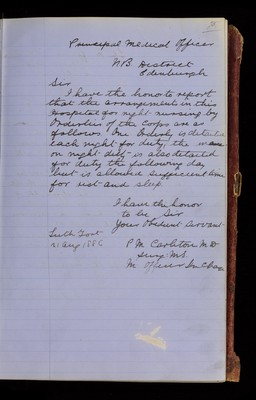 Principal Medical Officer
N.B. District
Edinburgh
Sir
I have the honor to report
that the arrangements in this
Hospital for night nursing by
Orderlies of the Corps are as
follows. One Orderly is detailed
each night for duty, the man
on night duty is also detailed
for duty the following day
but is allowed sufficient time
for rest and sleep
I have the honor
to be Sir
Your Obedient Servant
Leith Fort
21 Aug
P M Carleton MD
Surg: M.S.
M Officer In Charge